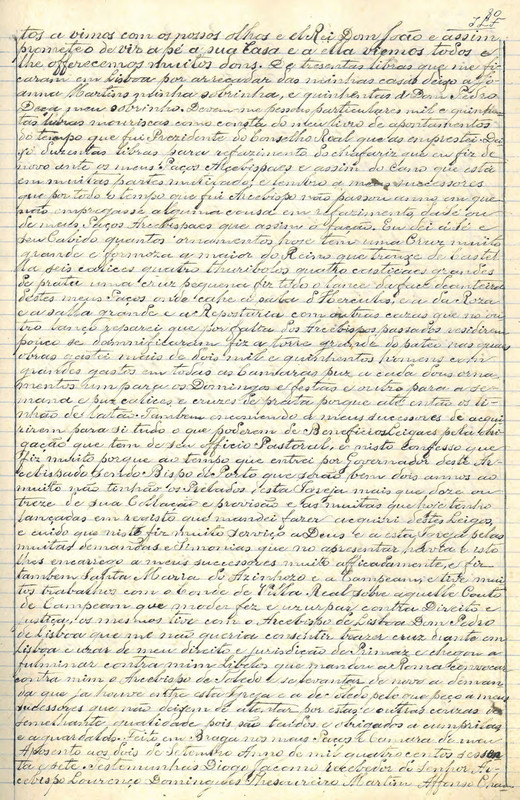 tos a vimos com os nossos olhos e el Rei Dom João e assim
prometêo de vir a pé a sua Casa e a ella viemos todos e
lhe offerecemos muitos dons. De tresentas libras que me fi
caram em Lisboa por arrecadar das minhas casas deixo a Jo
anna Martins minha sobrinha, e quinhentas a Dom Pedro
meu sobrinho. Devem me pessoas particulares mil e quinhen
tas libras mouriscas como consta do meu livro de apontamentos
do tempo que fui Prezidente do Conselho Real que as emprestei. Dei
xo duzentas libras para refazimento do chafariz que eu fiz de
novo ante os meus Paços Arcebispaes e assim do Cano que está
em muitas partes mutizado, e lembro a meus successores
que por todo o tempo que fui Arcebispo não passou anno em que
não empregasse alguma cousa em refazimento da Sé ou
de meus Paços Arcebispaes que assim o fação. Eu dei á Sé e
seu Cabido quantos ornamentos hoje tem uma Cruz muito
grande e formoza a maior do Reino que trouxe de Castel
la seis calices quatro thuribolos quatro casticaes grandes
de prata uma cruz pequena fiz todo o lanço da face deanteira
destes meus Paços onde cahe a sala d'Hercules, e a da Roza
e a salla grande e a Repostaria com outras cazas que no ou
tro lanço reparei que por falta dos Arcebispos passados residirem
pouco se damnificarãm fiz a torre grande do pateo nas quaes
obras gastei mais de dois mil e quinhentos homens com
grandes gastos em todas as Camaras puz a cada dous orna
mentos um para os Domingos e festas e outro para a se
mana e puz calices e cruzes de prata porque até então os ti
nhão de latão. Tambem encomendo a meus successores de acqui
rirem para si tudo o que poderem de Beneficios Leigaes pela obri
gação que tem de seu Officio Pastoral, e nisto confesso que
fiz muito porque ao tempo que entrei por Governador deste Ar
cebispado sendo Bispo do Porto que serão bem dois annos ao
muito não tenhão os Prelados desta Igreja mais que doze ou
treze de sua Collação e provisão e as muitas que hoje tenho
lançadas em revisto que mandei fazer acquiri destes Leigos,
e cuido que nisto fiz muito serviço a Deus e a esta Igreja pelas
muitas demandas e Simonias que no apresentar havia e isto
lhes encarrego a meus successores muito afficadamente, e fiz
tambem Santa Maria do Azinhozo e a Campeam, e tive mui
tos trabalhos com o Conde de Villa Real sobre aquelle Couto
de Campeam que me der fez e uzurpar contra Direito e
justiça, os mesmos tive com o Arcebispo de Lisboa Dom Pedro
de Lisboa que me não queria consentir trazer cruz diante em
Lisboa e uzar de meu direito e jurisdição de Primaz e chegou a
fulminar contra mim Libelos que mandou a Roma e convocar
contra mim o Arcebispo de Toledo e se levantar de novo a deman
da que ja houve entre esta Igreja e a de Toledo pelo que peço a meus
successores que não deixem de attentar por estas e outras couzas de
semelhante qualidade pois são tuidos e obrigados a cumprilas
e a guardalas. Feito em Braga nos meus Paços e Camara de meu
Apozento aos dois de Setembro Anno de mil quatro centos sessen
ta e sete. Testemunhas Diogo Jacome recebedor do Senhor Ar
cebispo Lourenço Domingues Thesoureiro Martim Affonso